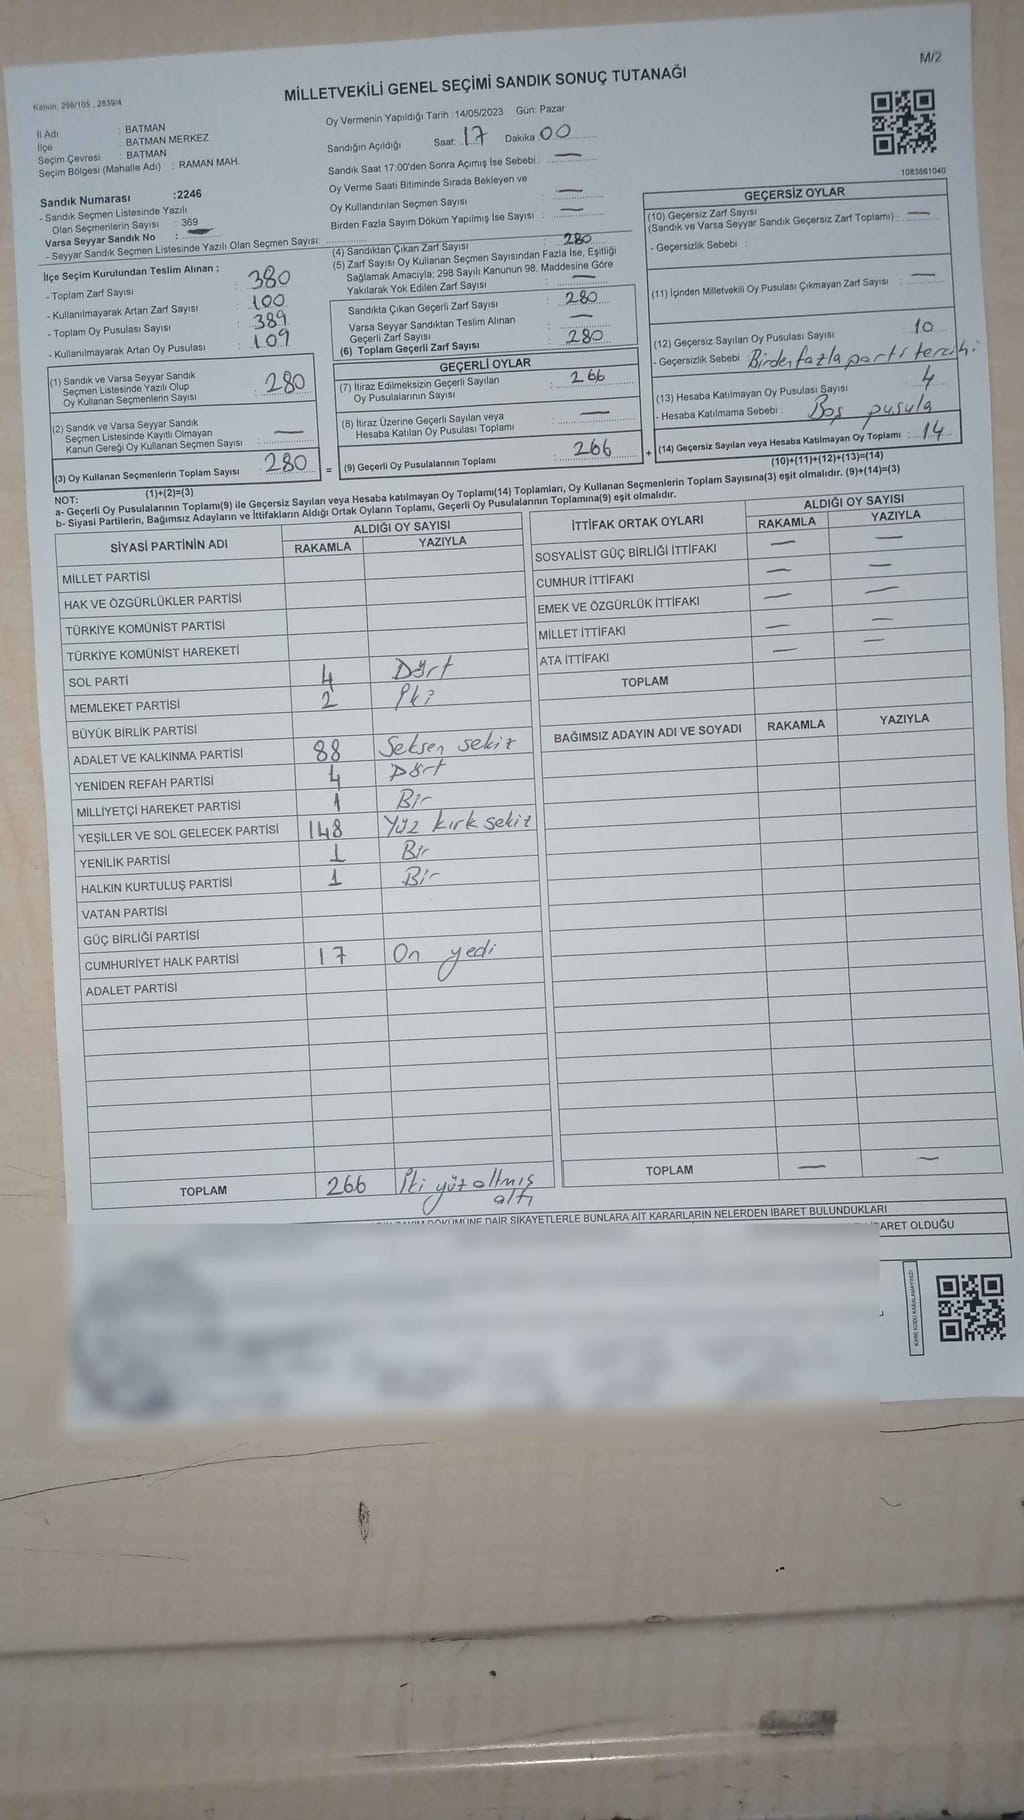 M/2
Kanun: 298/105 , 2839/4
MİLLETVEKİLİ GENEL SEÇİMİ SANDIK SONUÇ TUTANAĞI
İl Adı : BATMAN
İlçe : BATMAN MERKEZ
Seçim Çevresi : BATMAN
Seçim Bölgesi (Mahalle Adı) : RAMAN MAH.
Sandık Numarası :2246
- Sandık Seçmen Listesinde Yazılı
Olan Seçmenlerin Sayısı : 369
Varsa Seyyar Sandık No :
- Seyyar Sandık Seçmen Listesinde Yazılı Olan Seçmen Sayısı:
Oy Vermenin Yapıldığı Tarih :14/05/2023 Gün: Pazar
Sandığın Açıldığı Saat: 17 Dakika 00
Sandık Saat 17:00'den Sonra Açımış İse Sebebi : —
Oy Verme Saati Bitiminde Sırada Bekleyen ve
Oy Kullandırılan Seçmen Sayısı —
Birden Fazla Sayım Döküm Yapılmış İse Sayısı : —
1083861040
İlçe Seçim Kurulundan Teslim Alınan :
- Toplam Zarf Sayısı : 380
- Kullanılmayarak Artan Zarf Sayısı : 100
- Toplam Oy Pusulası Sayısı : 389
- Kullanılmayarak Artan Oy Pusulası : 109
(1) Sandık ve Varsa Seyyar Sandık
Seçmen Listesinde Yazılı Olup
Oy Kullanan Seçmenlerin Sayısı : 280
(2) Sandık ve Varsa Seyyar Sandık
Seçmen Listesinde Kayıtlı Olmayan
Kanun Gereği Oy Kullanan Seçmen Sayısı : —
(3) Oy Kullanan Seçmenlerin Toplam Sayısı : 280 =
(1)+(2)=(3)
(4) Sandıktan Çıkan Zarf Sayısı : 280
(5) Zarf Sayısı Oy Kullanan Seçmen Sayısından Fazla İse, Eşitliği
Sağlamak Amacıyla; 298 Sayılı Kanunun 98. Maddesine Göre
Yakılarak Yok Edilen Zarf Sayısı : —
Sandıkta Çıkan Geçerli Zarf Sayısı : 280
Varsa Seyyar Sandıktan Teslim Alınan
Geçerli Zarf Sayısı : —
(6) Toplam Geçerli Zarf Sayısı : 280
GEÇERLİ OYLAR
(7) İtiraz Edilmeksizin Geçerli Sayılan
Oy Pusulalarının Sayısı : 266
(8) İtiraz Üzerine Geçerli Sayılan veya
Hesaba Katılan Oy Pusulası Toplamı : —
(9) Geçerli Oy Pusulalarının Toplamı : 266 +
GEÇERSİZ OYLAR
(10) Geçersiz Zarf Sayısı
(Sandık ve Varsa Seyyar Sandık Geçersiz Zarf Toplamı) : —
- Geçersizlik Sebebi :
(11) İçinden Milletvekili Oy Pusulası Çıkmayan Zarf Sayısı : —
(12) Geçersiz Sayılan Oy Pusulası Sayısı : 10
- Geçersizlik Sebebi : Birden fazla parti tercihi
(13) Hesaba Katılmayan Oy Pusulası Sayısı : 4
- Hesaba Katılmama Sebebi : Boş pusula
(14) Geçersiz Sayılan veya Hesaba Katılmayan Oy Toplamı : 14
(10)+(11)+(12)+(13)=(14)
NOT:
a- Geçerli Oy Pusulalarının Toplamı(9) ile Geçersiz Sayılan veya Hesaba katılmayan Oy Toplamı(14) Toplamları, Oy Kullanan Seçmenlerin Toplam Sayısına(3) eşit olmalıdır. (9)+(14)=(3)
b- Siyasi Partilerin, Bağımsız Adayların ve İttifakların Aldığı Ortak Oyların Toplamı, Geçerli Oy Pusulalarının Toplamına(9) eşit olmalıdır.
SİYASİ PARTİNİN ADI ALDIĞI OY SAYISI
RAKAMLA YAZIYLA
MİLLET PARTİSİ
HAK VE ÖZGÜRLÜKLER PARTİSİ
TÜRKİYE KOMÜNİST PARTİSİ
TÜRKİYE KOMÜNİST HAREKETİ
SOL PARTİ 4 Dört
MEMLEKET PARTİSİ 2 İki
BÜYÜK BİRLİK PARTİSİ
ADALET VE KALKINMA PARTİSİ 88 Seksen sekiz
YENİDEN REFAH PARTİSİ 4 Dört
MİLLİYETÇİ HAREKET PARTİSİ 1 Bir
YEŞİLLER VE SOL GELECEK PARTİSİ 148 Yüz kırk sekiz
YENİLİK PARTİSİ 1 Bir
HALKIN KURTULUŞ PARTİSİ 1 Bir
VATAN PARTİSİ
GÜÇ BİRLİĞİ PARTİSİ
CUMHURİYET HALK PARTİSİ 17 On yedi
ADALET PARTİSİ
TOPLAM 266 İki yüz altmış
altı
İTTİFAK ORTAK OYLARI ALDIĞI OY SAYISI
RAKAMLA YAZIYLA
SOSYALİST GÜÇ BİRLİĞİ İTTİFAKI — —
CUMHUR İTTİFAKI — —
EMEK VE ÖZGÜRLÜK İTTİFAKI — —
MİLLET İTTİFAKI — —
ATA İTTİFAKI — —
TOPLAM
BAĞIMSIZ ADAYIN ADI VE SOYADI RAKAMLA YAZIYLA
TOPLAM — —
DÖKÜMÜNE DAİR ŞİKAYETLERLE BUNLARA AİT KARARLARIN NELERDEN İBARET BULUNDUKLARI
İBARET OLDUĞU